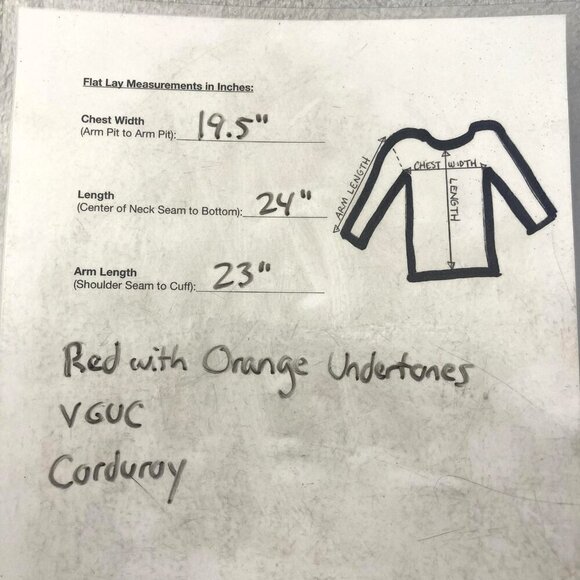 Flat Lay Measurements in Inches:
Chest Width
(Arm Pit to Arm Pit): 19.5"
Length
(Center of Neck Seam to Bottom): 24"
Arm Length
(Shoulder Seam to Cuff): 23"
ARM LENGTH
CHEST WIDTH
LENGTH
Red with Orange Undertones
VGUC
Corduroy